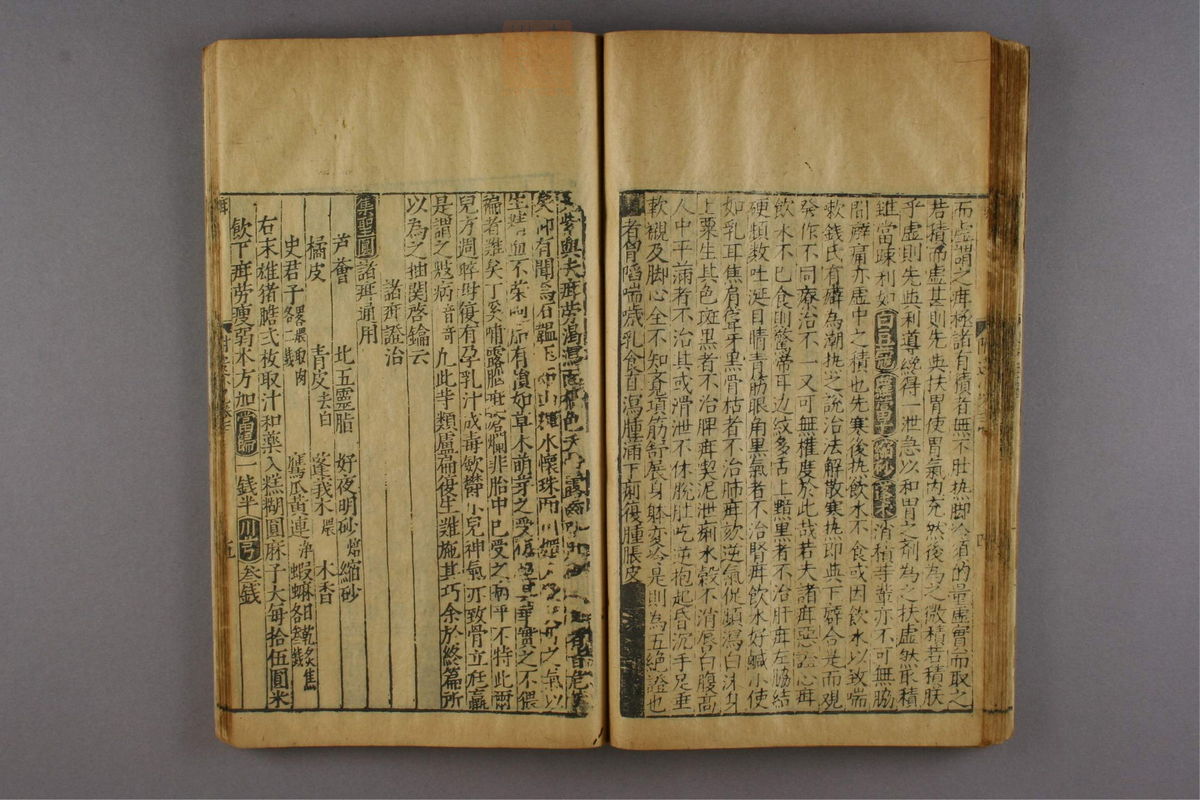 而虛謂之疳極諸有積者無不肚熱脚冷須的量虛實而取之
若積而虛甚則先與扶胃使胃氣內充然後為之微積若積胀
乎虛則先與利導纔得一泄急以和胃之劑為之扶虛然取積
雖當疎利如白豆蔻縮砂莪朮消積等輩亦不可無脇
間癖痛亦虛中之積也先寒後热飲水不食或因飲水以致喘
欬錢氏有癖為潮热之說治法解散寒热即與下癖合是而觀
發作不同療治不一又可無權度於此哉若夫諸疳惡證心疳
飲水不已食則驚啼耳边紋多舌上黯黑者不治肝疳左脇結
硬頻數吐涎目睛青筋眼角黑氣者不治腎疳飲水好鹹小使
如乳耳焦肩聳牙黑骨枯者不治肺疳欬逆氣促頻瀉白沫身
上粟生其色斑黑者不治脾疳喫泥泄痢水穀不消唇白腹高
人中平滿者不治其或滑泄不休脫肛吃逆抱起昏沉手足垂
軟襯及脚心全不知覺項筋舒展身躰變冷是則為五絕證也
者曾噎喘嗽乳食自瀉腫滿下痢復腫脹皮
與夫疳勞渴瀉面槁色夭
山輝水懷珠而川媚
如草木萌芽之受華實之不偎
徧者難矣丁奚哺露腦疳瘡爛非胎中已受之病乎不特此爾
兒方週晬母復有孕乳汁成毒欝小兒神氣亦致骨立尫羸
是謂之鬾病音奇凡此等類盧扁復生難施其巧余於終篇所
以為之抽関啓鑰云
諸疳證治
集聖圓諸疳通用
芦薈 北五靈脂 好夜明砂焙縮砂
橘皮 青皮去白 蓬莪朮煨 木香
史君子略煨取肉各二錢 鷹爪黃連淨 蝦蟆日乾炙焦各叁錢
右末雄猪膽弍枚取汁和藥入糕糊圓麻子大每拾伍圓米
飲下疳勞瘦弱本方加當歸一錢半川芎叁錢
五